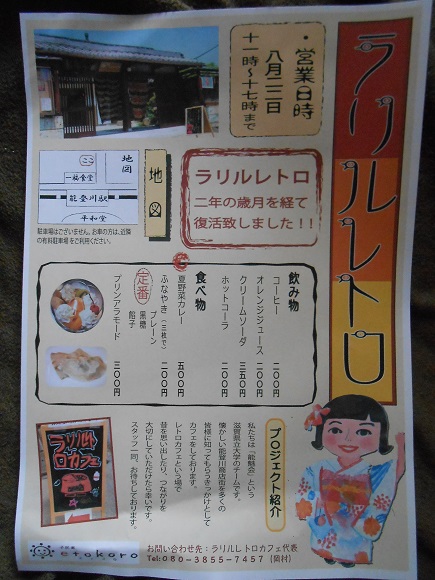 ラリルレトロ
・営業日時
八月二二日
十一時～十七時まで
地図
ここ
一福食堂
能登川駅
平和堂
地図
駐車場はございません。お車の方は、近隣
の有料駐車場をご利用ください。
ラリルレトロ
二年の歳月を経て
復活致しました！！
飲み物
コーヒー 二〇〇円
オレンジジュース 二〇〇円
クリームソーダ 三五〇円
ホットコーラ 二〇〇円
食べ物
夏野菜カレー 五〇〇円
ふなやき(三枚で) 二〇〇円
定番
プレーン
黒糖
餡子
プリンアラモード 三〇〇円
プロジェクト紹介
私たちは『能魅会』という
滋賀県立大学のチームです。
懐かしい能登川商店街を多くの
皆様に知ってもらうきっかけとして
カフェをしております。
レトロカフェという場で
昔を思い出したり、つながりを
大切にしていただけたら幸いです。
スタッフ一同、お待ちしております。
ラリルレ
トロカフェ
etokoro
お問い合わせ先：ラリルレトロカフェ代表
Tel:080-3855-7457 (岡村)